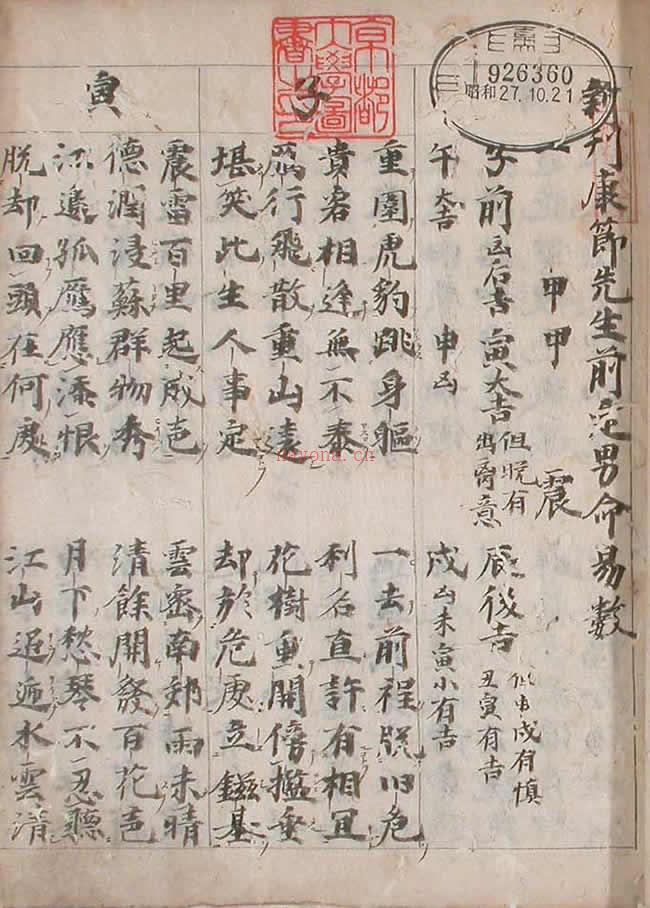 新刊康節先生前定男命易數
一 甲甲 震
子前凶后吉 寅大吉 但晚有出离意 辰後吉 但申戌有慎 丑寅有吉
午大吉 申凶 戌凶未寅小有吉
子
重圍虎豹跳身軀 一去前程脱旧危
貴名相逢無不泰 利名直許有相宜
鴈行飛散重山遠 花樹重開傍檻垂
堪笑比生人事定 却於危處立鎡基
寅
震雷百里起威声 雲密南郊雨未晴
德潤浸蘇群物秀 清餘開發百花
江邉孤鴈應添恨 月下愁琴不忍聽
脱却回頭在何處 江山迢遞水雲清
京都大學圖書之印
926360
昭和27.10.21
nayona.cn